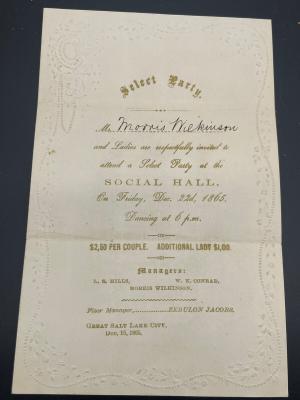 Select Party.
Mr. Morris Wilkinson
and Ladies are respectfully invited to
attend a Select Party at the
SOCIAL HALL,
On Friday, Dec. 22d, 1865.
Dancing at 6 p.m.
$2,50 PER COUPLE. ADDITIONAL LADY $1,00.
Managers:
L. S. HILLS, W. E. CONRAD,
MORRIS WILKINSON.
Floor Manager, ZEBULON JACOBS.
GREAT SALT LAKE CITY,
DEC. 15, 1865.